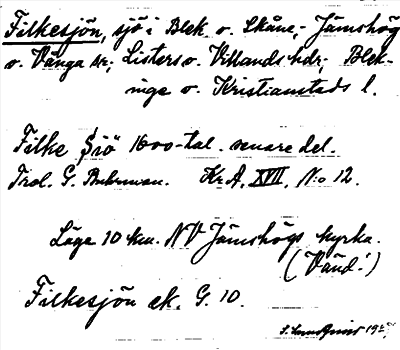 Filkesjön, sjö i Blek. o. Skåne, Jämshög
o. Vånga sr, Listers o. Villands hdr. Blek-
inge o. Kristianstads l.
Filke Siö 1600-tal. senare del.
Trol. G. Buhrman. Kr. A. XVII, No 12.
Läge 10 km. NV Jämshögs kyrka.
(Vänd!)
Filkesjön ek. G. 10.